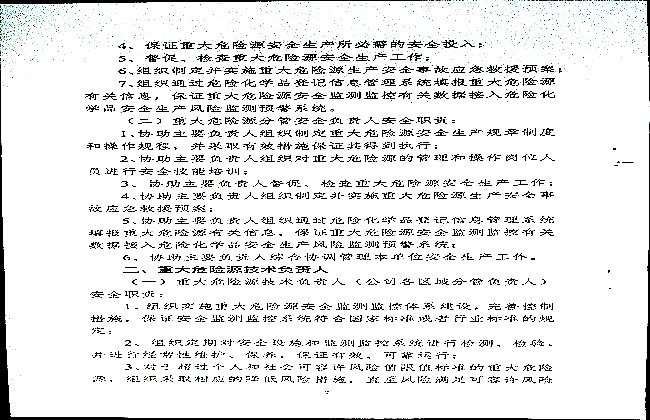 4、保证重大危险源安全生产所必需的安全投入；
5、督促、检查重大危险源安全生产工作；
6、组织制定并实施重大危险源生产安全事故应急救援预案；
7、组织通过危险化学品登记信息管理系统填报重大危险源
有关信息，保证重大危险源安全监测监控有关数据接入危险化
学品安全生产风险监测预警系统。
（二）重大危险源分管安全负责人安全职责：
1、协助主要负责人组织制定重大危险源安全生产规章制度
和操作规程，并采取有效措施保证其得到执行；
2、协助主要负责人组织对重大危险源的管理和操作岗位人
员进行安全技能培训；
3、协助主要负责人督促、检查重大危险源安全生产工作；
4、协助主要负责人组织制定并实施重大危险源生产安全事
故应急救援预案；
5、协助主要负责人组织通过危险化学品登记信息管理系统
填报重大危险源有关信息，保证重大危险源安全监测监控有关
数据接入危险化学品安全生产风险监测预警系统；
6、协助主要负责人综合协调管理本单位安全生产工作。
二、重大危险源技术负责人
（一）重大危险源技术负责人（公司各区域分管负责人）
安全职责：
1、组织实施重大危险源安全监测监控体系建设，完善控制
措施，保证安全监测监控系统符合国家标准或者行业标准的规
定；
2、组织定期对安全设施和监测监控系统进行检测、检验，
并进行经常性维护、保养，保证有效、可靠运行；
3、对于超过个人和社会可容许风险值限值标准的重大危险
源，组织采取相应的降低风险措施，直至风险满足可容许风险